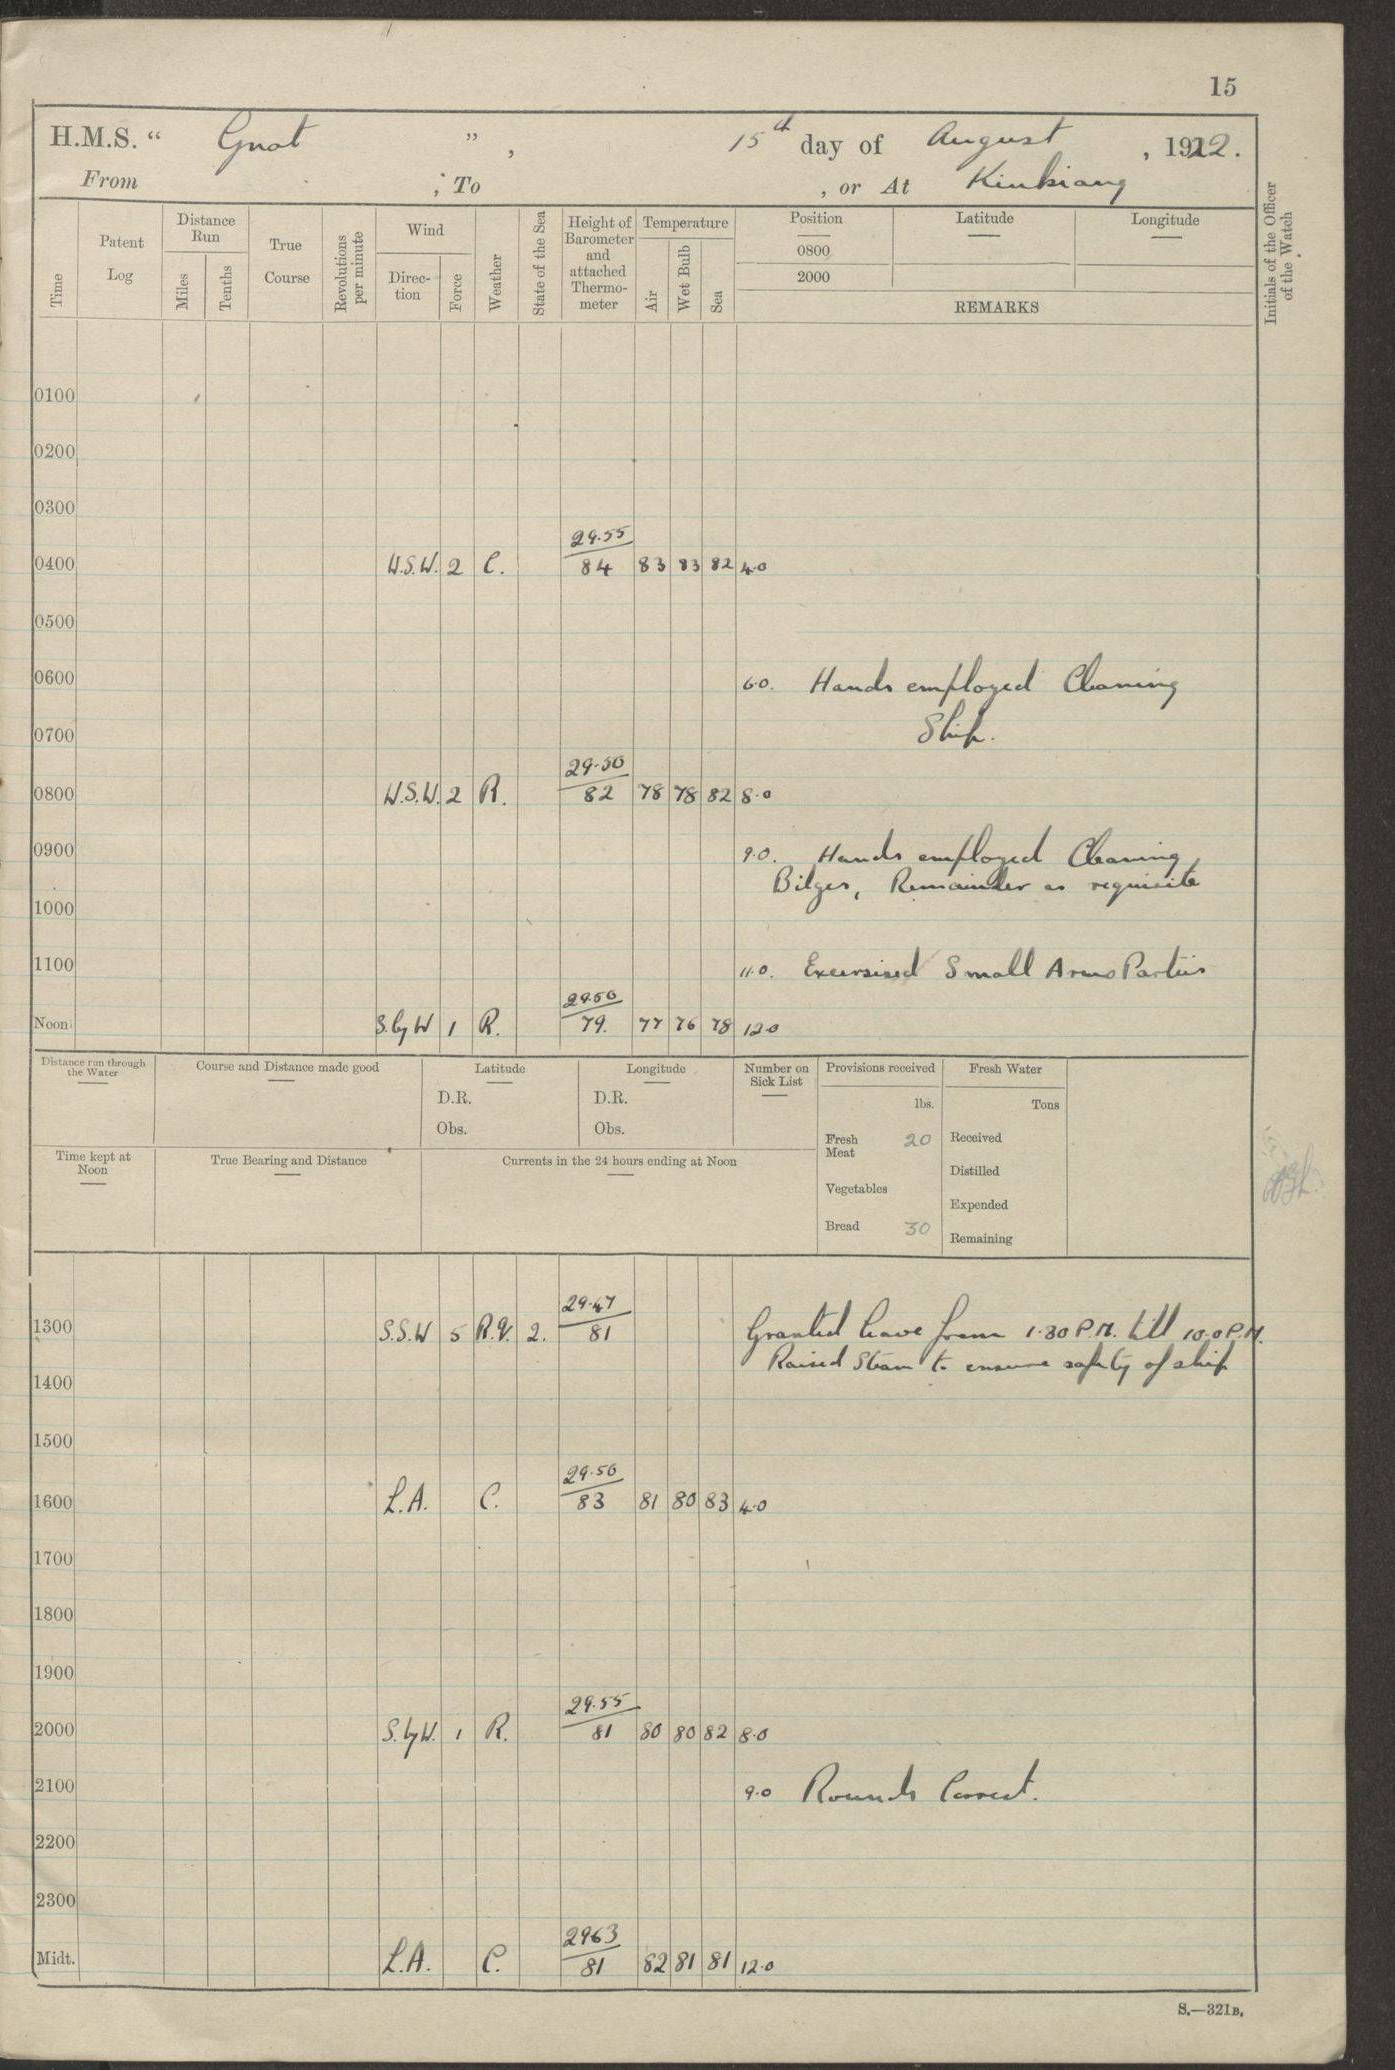 15
H.M.S. “ Gnat ” , 15th day of August , 1922.
From ; To , or At Kiukiang
Time
Patent Log
Distance Run
Miles
Tenths
True Course
Revolutions per minute
Wind
Direction
Force
Weather
State of the Sea
Height of Barometer and attached Thermometer
Temperature
Air
Wet Bulb
Sea
Position
Latitude
Longitude
0800
2000
REMARKS
Initials of the Officer of the Watch
0100
0200
0300
29.55
0400 W.S.W. 2 C. 84 83 83 82 4.0
0500
0600 6.0. Hands employed Cleaning
Ship.
0700
29.50
0800 W.S.W. 2 R. 82 78 78 82 8.0
0900 9.0. Hands employed Cleaning,
Bilges, Remainder as requisite
1000
1100 11.0. Excersised Small Arms Parties
29.50
Noon S. by W 1 R. 79. 77 76 78 12.0
Distance run through the Water
Course and Distance made good
Latitude
D.R.
Obs.
Longitude
D.R.
Obs.
Number on Sick List
Provisions received
lbs.
Fresh Meat 20
Vegetables
Bread 30
Fresh Water
Tons
Received
Distilled
Expended
Remaining
Time kept at Noon
True Bearing and Distance
Currents in the 24 hours ending at Noon
29.47
1300 S.S.W 5 R.Q. 2. 81 Granted leave from 1.30 P.M. till 10.0 P.M.
Raised Steam to ensure safety of ship
1400
1500
29.50
1600 L.A. C. 83 81 80 83 4.0
1700
1800
1900
29.55
2000 S. by W. 1 R. 81 80 80 82 8.0
2100 9.0 Rounds Correct.
2200
2300
2963
Midt. L.A. C. 81 82 81 81 12.0
S.—321B.